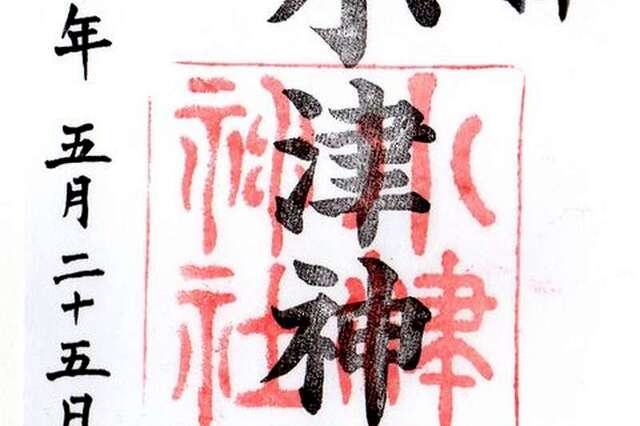 小津神
小津
神社
年五月二十五日